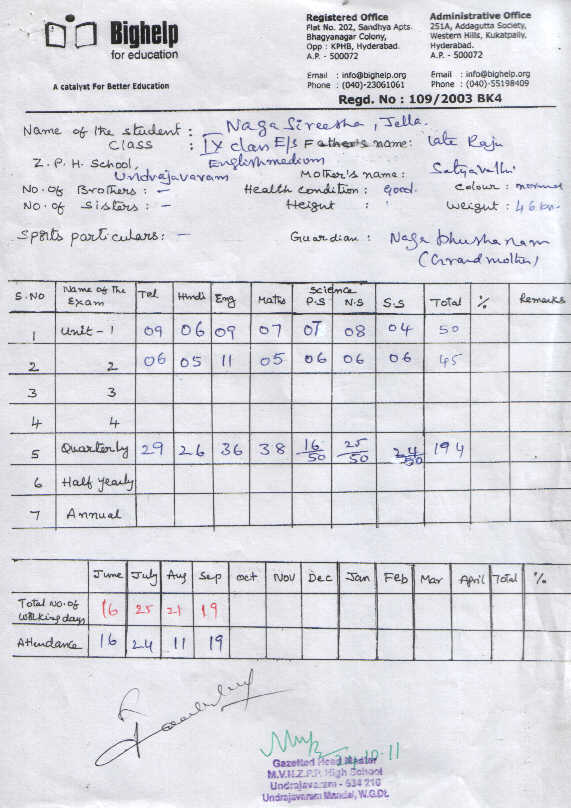 Bighelp
for education
A catalyst For Better Education
Registered Office
Flat No. 202, Sandhya Apts.
Bhagyanagar Colony,
Opp : KPHB, Hyderabad.
A.P. - 500072
Email : info@bighelp.org
Phone : (040)-23061061
Administrative Office
251A, Addagutta Society,
Western Hills, Kukatpally,
Hyderabad.
A.P. - 500072
Email : info@bighelp.org
Phone : (040)-55198409
Regd. No : 109/2003 BK4
Name of the student : Naga Sireesha, Jella.
Class : IX class E/S Father's name: late Raju
Z.P.H. School, English medium
Undrajavaram Mother's name: Satyavathi
No. of Brothers: - Health condition: good. Colour: normal
No. of Sisters: - Height : Weight: 46
Sports particulars: - Guardian : Naga bhushanam
(Grand mother)
S.NO Name of the Exam Tel Hindi Eng Maths Science P.S N.S S.S Total % Remarks
1 Unit - 1 09 06 09 07 07 08 04 50
2 2 06 05 11 05 06 06 06 45
3 3
4 4
5 Quarterly 29 26 36 38 16/50 25/50 24/50 194
6 Half yearly
7 Annual
June July Aug Sep Oct Nov Dec Jan Feb Mar April Total %
Total No. of working days 16 25 21 19
Attendance 16 24 11 19
10-11
Gazetted Head Master
M.V.N.Z.P.P. High School
Undrajavaram - 534 216
Undrajavaram Mandal, W.G.Dt.